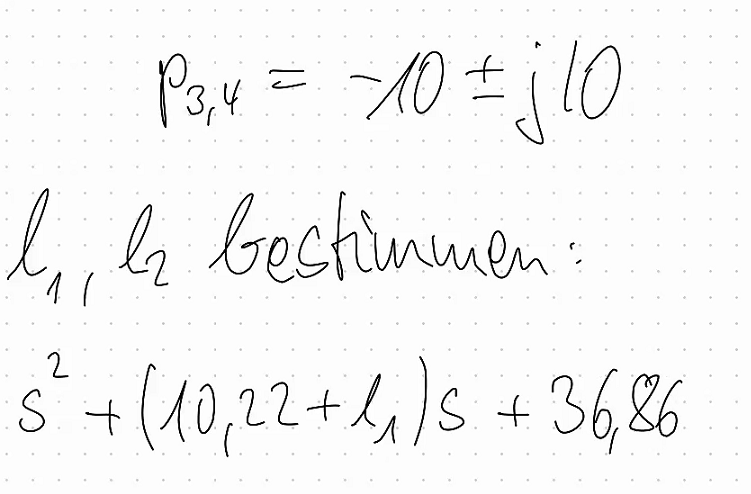 p₃,₄ = -10 ± j10
l₁, l₂ bestimmen:
s² + (10,22 + l₁)s + 36,86